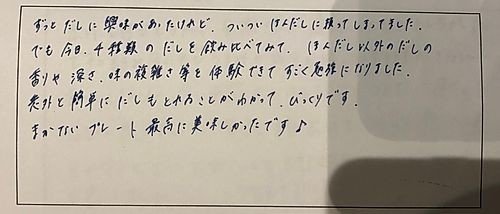 ずっとだしに興味があったけれど、ついついほんだしに頼ってしまってました。
でも今日、4種類のだしを飲み比べてみて、ほんだし以外のだしの
香りや深さ、味の複雑さ等を体験できてすごく勉強になりました。
意外と簡単にだしもとれることがわかって、びっくりです。
まかないプレート最高に美味しかったです♪